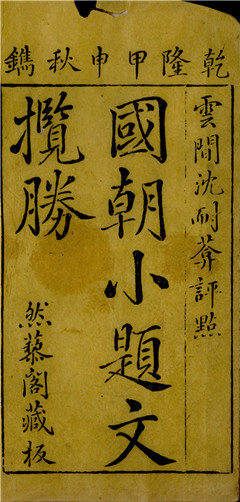 乾隆甲申秋鐫
雲間沈耐葊評點
國朝小題文
攬勝
然藜閣藏板